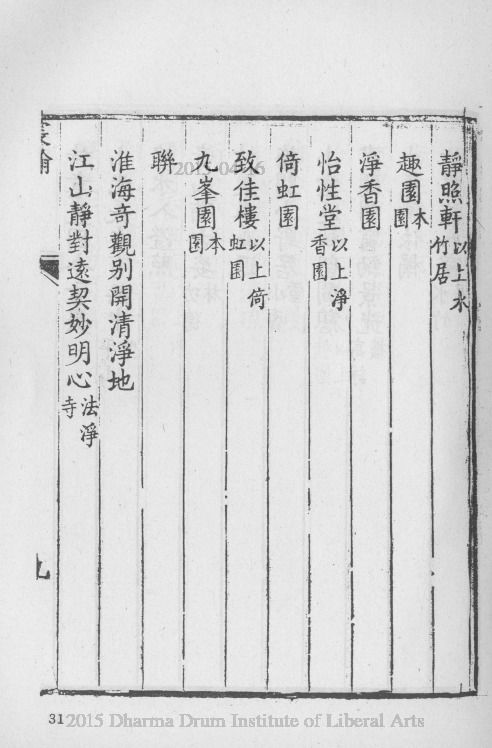 靜照軒以上水竹居
趣園本園
淨香園
怡性堂以上淨香園
倚虹園
致佳樓以上倚虹園
九峯園本園
聯
淮海奇觀別開清淨地
江山靜對遠契妙明心法淨寺
宸翰
九
31
2015 Dharma Drum Institute of Liberal Arts